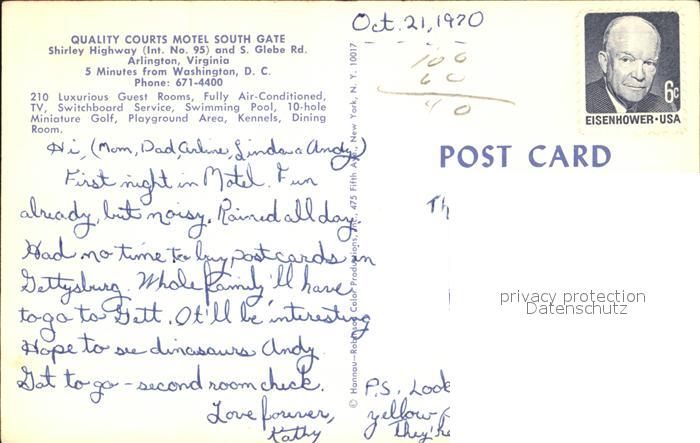 QUALITY COURTS MOTEL SOUTH GATE
Shirley Highway (Int. No. 95) and S. Glebe Rd.
Arlington, Virginia
5 Minutes from Washington, D. C.
Phone: 671-4400
210 Luxurious Guest Rooms, Fully Air-Conditioned,
TV, Switchboard Service, Swimming Pool, 10-hole
Miniature Golf, Playground Area, Kennels, Dining
Room.
Hi, (Mom, Dad, Arline, Linda & Andy)
First night in Motel. Fun
already, but noisy. Rained all day.
Had no time to buy postcards in
Gettysburg. Whole family'll have
to go to Gett. It'll be interesting
Hope to see dinasaurs Andy.
Got to go - second room check.
Love forever,
Kathy
© Hannau-Robinson Color Productions, Inc., 475 Fifth Ave., New York, N. Y. 10017
Oct. 21, 1970
100
60
40
6c
EISENHOWER·USA
POST CARD
Th
privacy protection
Datenschutz
P.S. Look
yellow
they're